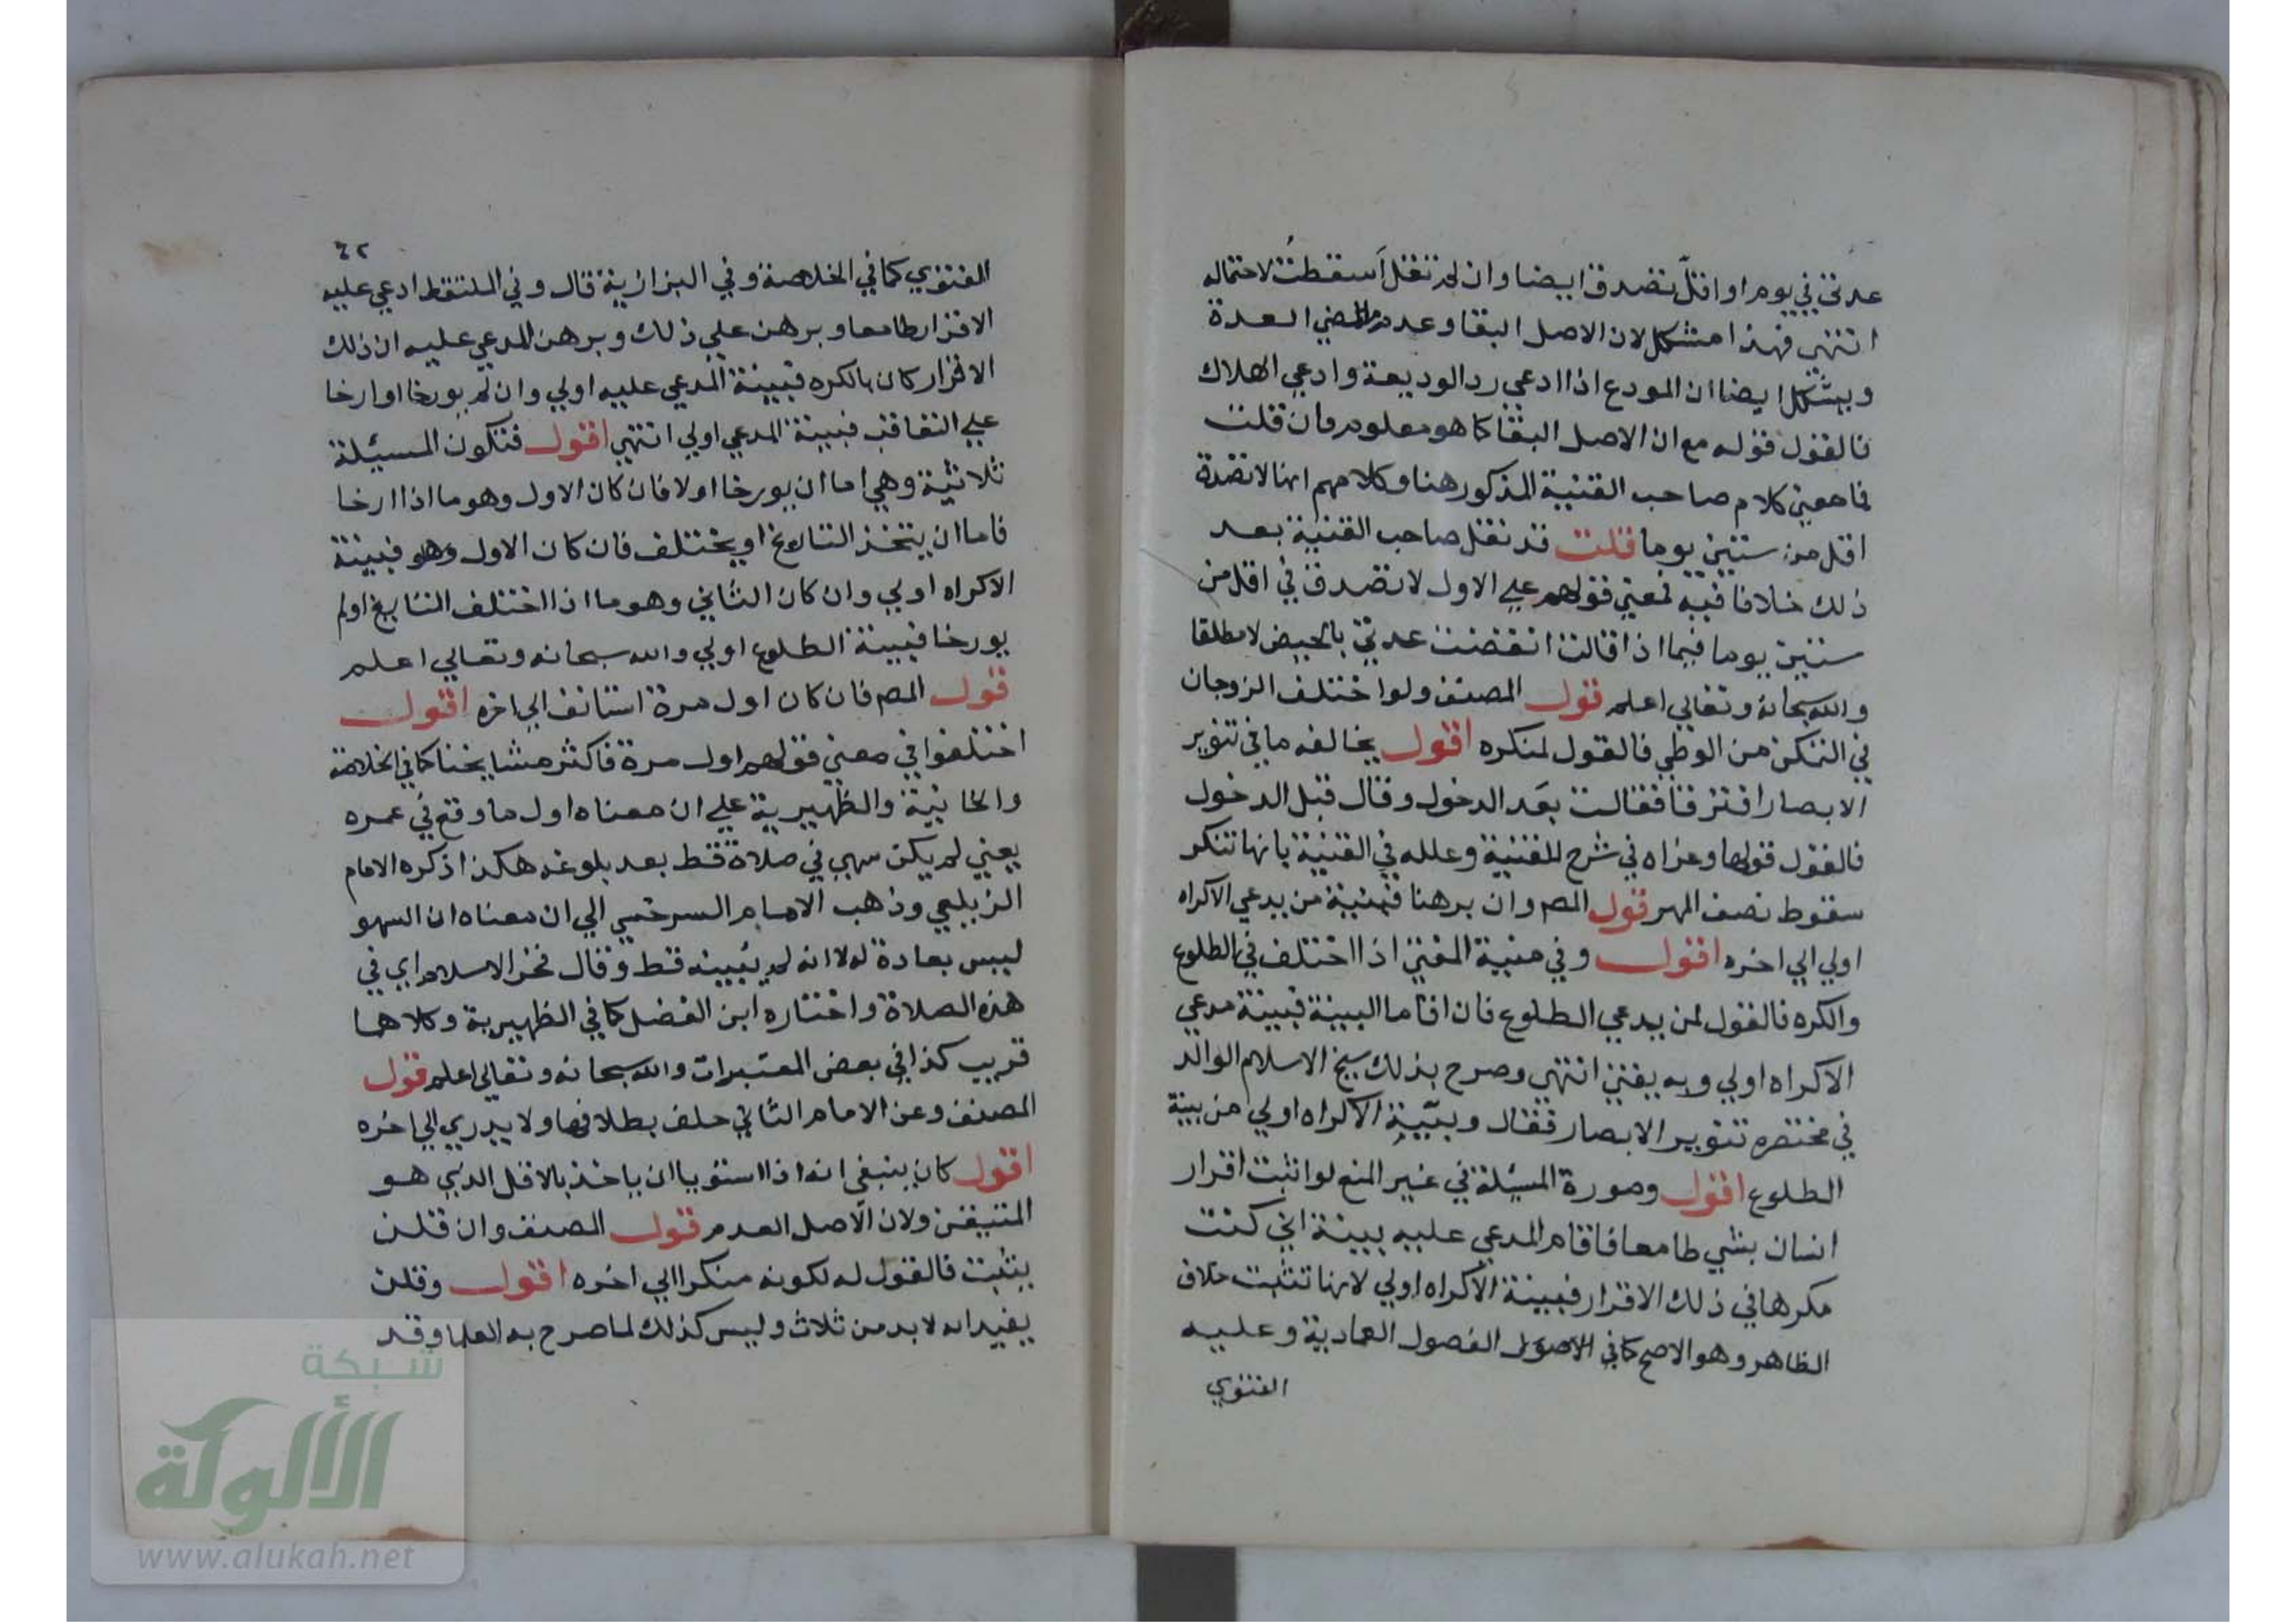 عدتي في يوم او اقل تصدق ايضا وان لم تقل اسقطت لاحتماله
انتهى فهذا مشكل لان الاصل البقا وعدم مضي العدة
ويشكل ايضا ان المودع اذا ادعى رد الوديعة وادعي الهلاك
فالقول قوله مع ان الاصل البقا كما هو معلوم فان قلت
فما معني كلام صاحب القنية المذكور هنا وكلامهم انها لا تصدق
اقل من ستين يوما قلت قد نقل صاحب القنية بعد
ذلك خلافا فيه فمعني قولهم علي الاول لا تصدق في اقل من
ستين يوما فيما اذا قالت انقضت عدتي بالحيض لا مطلقا
والله سبحانه وتعالي اعلم قول المصنف ولو اختلف الزوجان
في التمكن من الوطي فالقول لمنكره اقول يخالفه ما في تنوير
الابصار افترقا فقالت بعد الدخول وقال قبل الدخول
فالقول قولها وعزاه في شرح للقنية وعلله في القنية بانها تنكر
سقوط نصف المهر قول المص وان برهنا فبينة من يدعي الاكراه
اولي الي اخره اقول وفي منية المفتي اذا اختلف في الطلوع
والكره فالقول لمن يدعي الطلوع فان اقاما البينة فبينة مدعي
الاكراه اولي وبه يفتي انتهي وصرح بذلك شيخ الاسلام الوالد
في مختصره تنوير الابصار فقال وبينة الاكراه اولي من بينة
الطلوع اقول وصورة المسئلة في غير المنع لو اثبت اقرار
انسان بشي طامعا فاقام المدعي عليه بينة اني كنت
مكرها في ذلك الاقرار فبينة الاكراه اولي لانها تثبت خلاف
الظاهر وهو الاصح كما في الفصول العمادية وعليه
الفتوي
٤٢
الفتوي كما في الخلاصة وفي البزازية قال وفي الملتقط ادعي عليه
الاقرار طامعا وبرهن علي ذلك وبرهن المدعي عليه ان ذلك
الاقرار كان بالكره فبينة المدعي عليه اولي وان لم يورخا او ارخا
علي التعاقب فبينة المدعي اولي انتهي اقول فتكون المسئلة
ثلاثية وهي اما ان يورخا او لا فان كان الاول وهو ما اذا ارخا
فاما ان يتخذ التاريخ او يختلف فان كان الاول وهو فبينة
الاكراه اولي وان كان الثاني وهو ما اذا اختلف التاريخ او لم
يورخا فبينة الطلوع اولي والله سبحانه وتعالي اعلم
قول المص فان كان اول مرة استانف الي اخره اقول
اختلفوا في معني قولهم اول مرة فاكثر مشايخنا كما في الخلاصة
والخانية والظهيرية علي ان معناه اول ما وقع في عمره
يعني لم يكن سهى في صلاة قط بعد بلوغه هكذا ذكره الامام
الزيلعي وذهب الامام السرخسي الي ان معناه ان السهو
ليس بعادة له لا انه لم يسه قط وقال فخر الاسلام اي في
هذه الصلاة واختاره ابن الفضل كما في الظهيرية وكلاهما
قريب كذا في بعض المعتبرات والله سبحانه وتعالي اعلم قول
المصنف وعن الامام الثاني حلف بطلاقها ولا يدري الي اخره
اقول كان ينبغي انه اذا استويا ان ياخذ بالاقل الذي هو
المتيقن ولان الاصل العدم قول المصنف وان قلن
يثبت فالقول له لكونه منكرا الي اخره اقول وقلن
يفيد انه لا بد من ثلاث وليس كذلك لما صرح به العلما وقد
شبكة
الألوكة
www.alukah.net